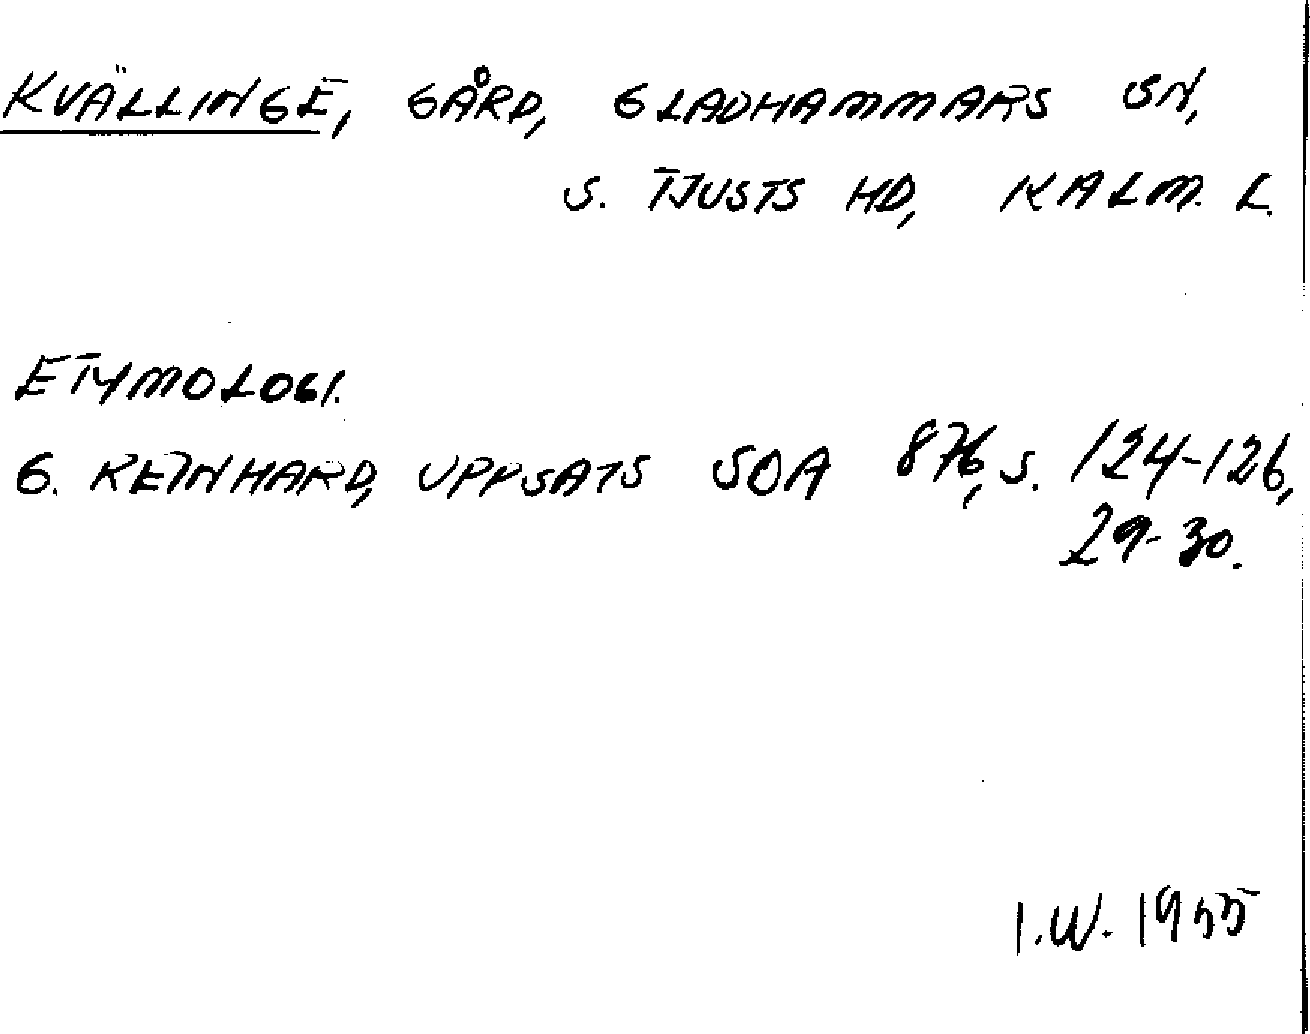 KVÄLLINGE, GÅRD, GLADHAMMARS SN,
S. TJUSTS HD, KALM. L.
ETYMOLOGI.
G. REINHARD, UPPSATS SOA 876, S. 124-126,
29-30.
I.W. 1955